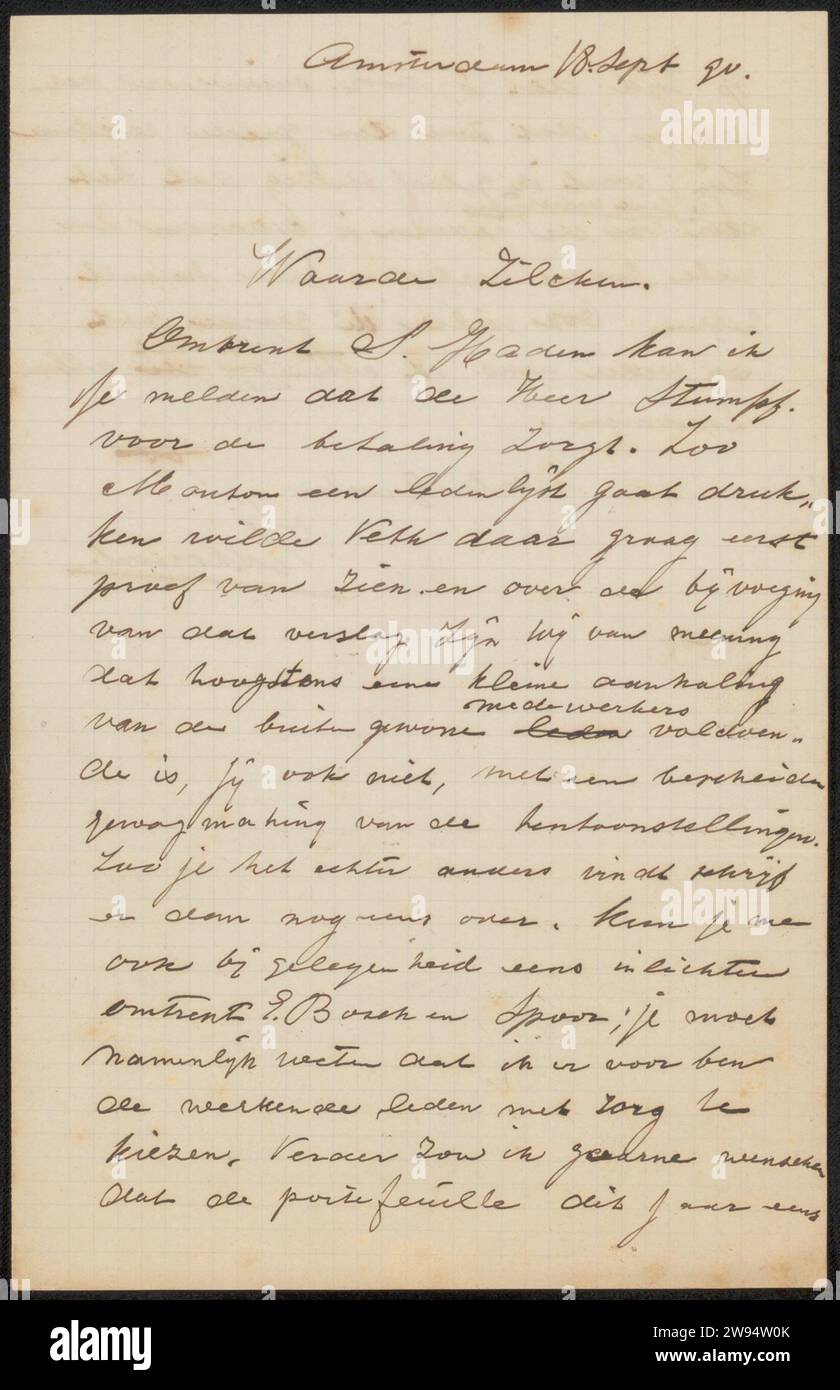 Amsterdam 18 Sept 90.
Waarde Zilcken.
Omtrent S. Haden kan ik
je melden dat de Heer Stumpf.
voor de betaling zorgt. Zoo
Mouton een ledenlijst gaat druk„
ken wilde Veth daar graag eerst
proef van zien. en over de bijvoeging
van dat verslag zijn wij van meening
dat hoogstens eene kleine aanhaling
medewerkers
van de buitengewone leden voldoen„
de is, jij ook niet, met een bescheiden
gewagmaking van de tentoonstellingen.
Zoo je het echter anders vindt schrijf
er dan nog eens over. Kun je me
ook bij gelegenheid eens inlichten
omtrent E. Bosch en Spoor; je moet
namenlijk weten dat ik er voor ben
de werkende leden met zorg te
kiezen. Verder zou ik gaarne wenschen
dat de portefeuille dit jaar eens
alamy
Image ID: 2W94W0K
www.alamy.com